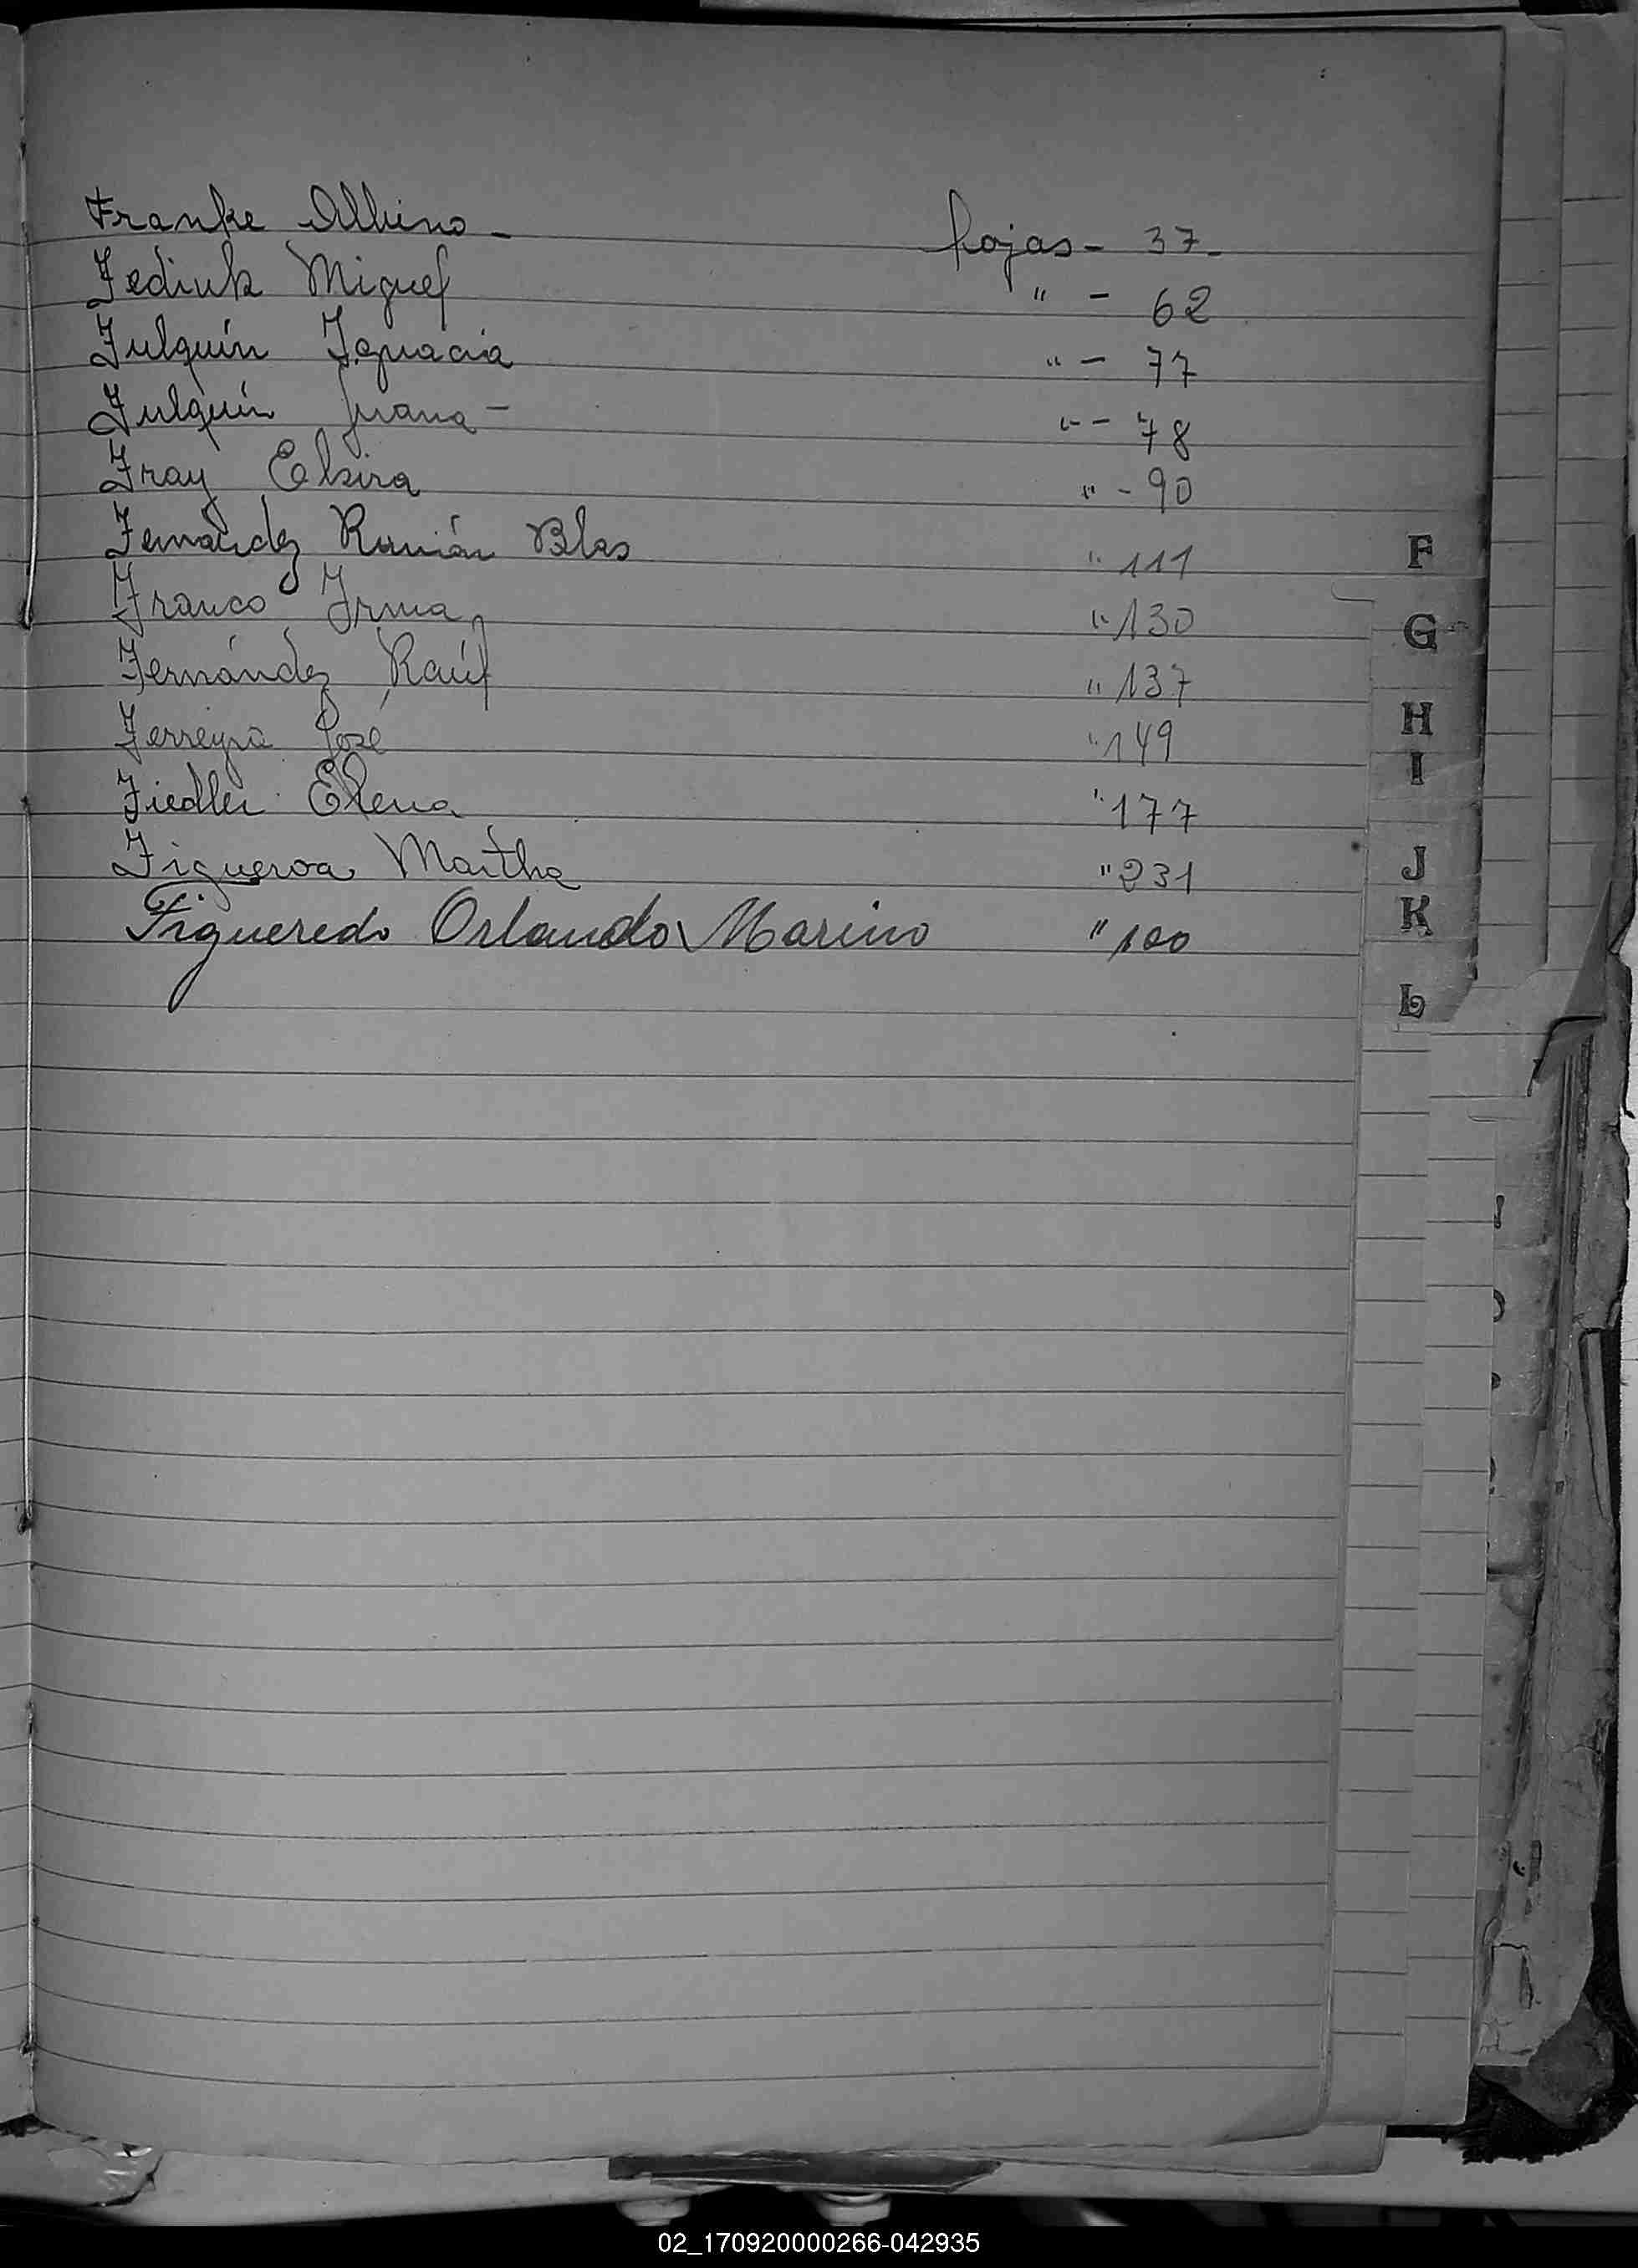 Franke Albino - hojas - 37.
Fediuk Miguel " - 62
Fulquín Ignacia " - 77
Fulquín Juana - " - 78
Fray Elvira " - 90
Fernández Román Blas " 111
Franco Irma " 130
Fernández Raúl " 137
Ferreyra José " 149
Fiedler Elena " 177
Figueroa Martha " 231
Figueredo Orlando Marino " 100
F
G
H
I
J
K
L
02_170920000266-042935